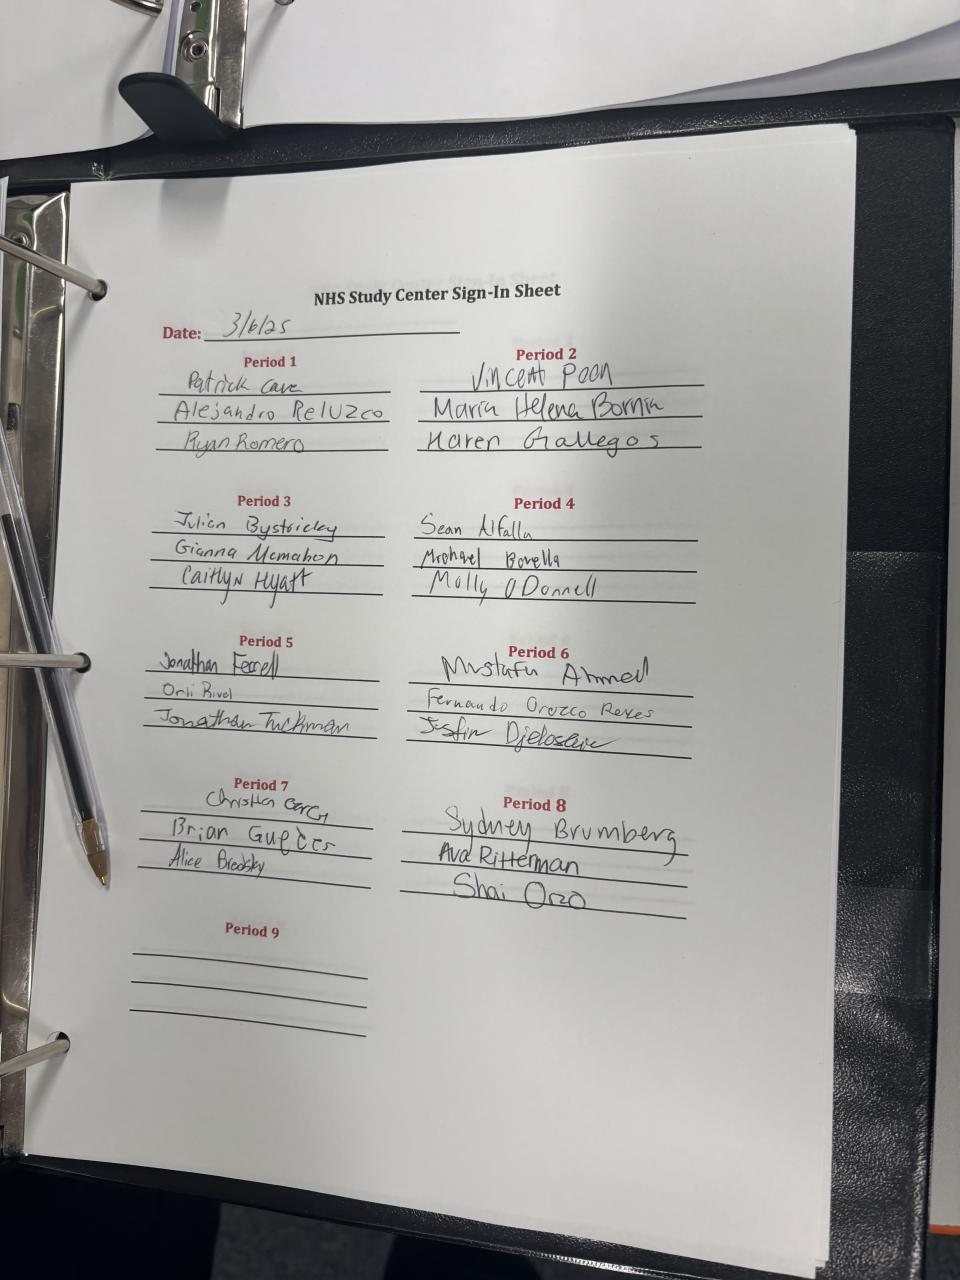 NHS Study Center Sign-In Sheet
Date: 3/6/25
Period 1
Patrick Cave
Alejandro Reluzco
Ryan Romero
Period 2
Vincent Poon
Maria Helena Bornia
Karen Gallegos
Period 3
Julian Bystricky
Gianna Mcmahon
Caitlyn Hyatt
Period 4
Sean Alfalla
Michael Bovella
Molly O'Donnell
Period 5
Jonathan Ferrell
Orli
Jonathan Tuckman
Period 6
Mustafa Ahmed
Fernando Orozco Reyes
Justin
Period 7
Christian
Brian
Alice Brodsky
Period 8
Sydney Brumberg
Ava Ritterman
Shai Orzo
Period 9